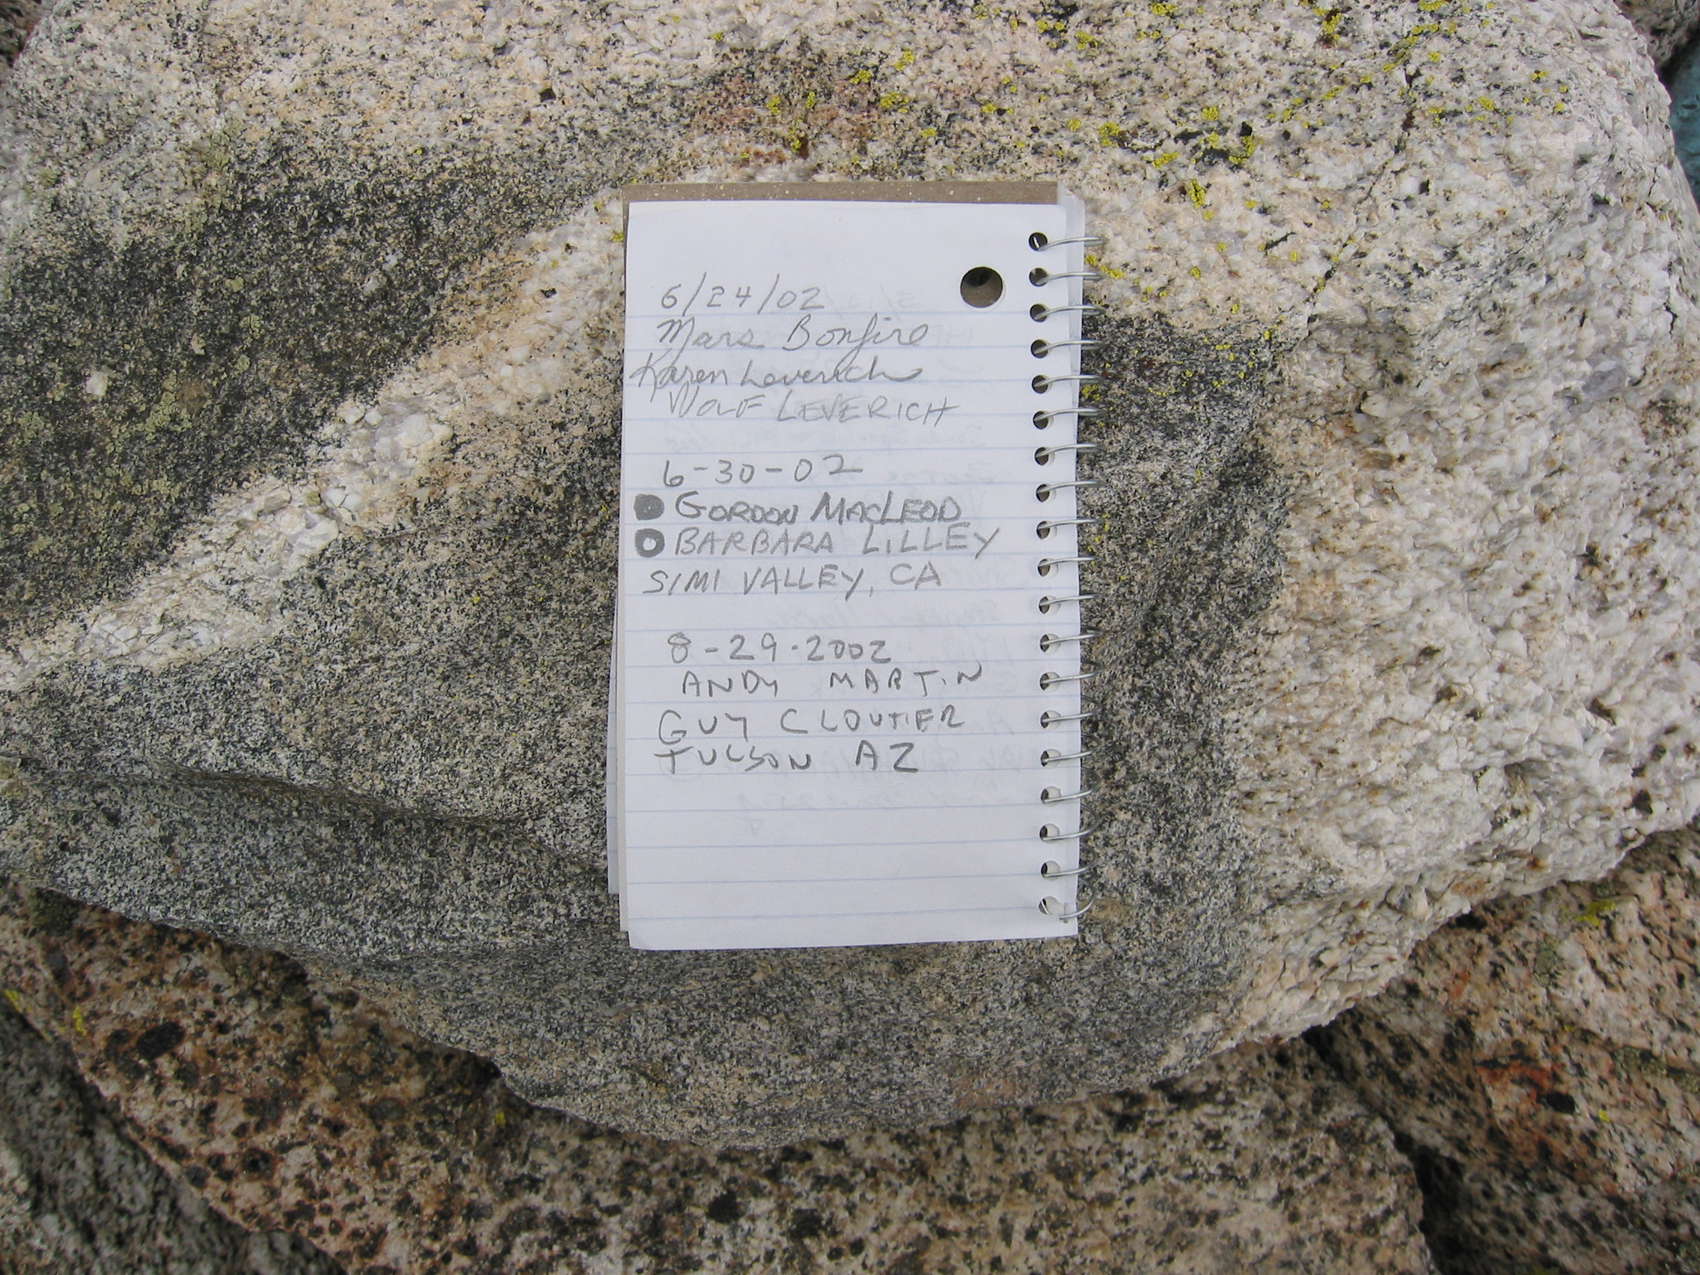 6/24/02
Mars Bonfire
Karen Leverich
Wolf LEVERICH
6-30-02
GORDON MACLEOD
BARBARA LILLEY
SIMI VALLEY, CA
8-29-2002
ANDY MARTIN
GUY CLOUTIER
TUCSON AZ